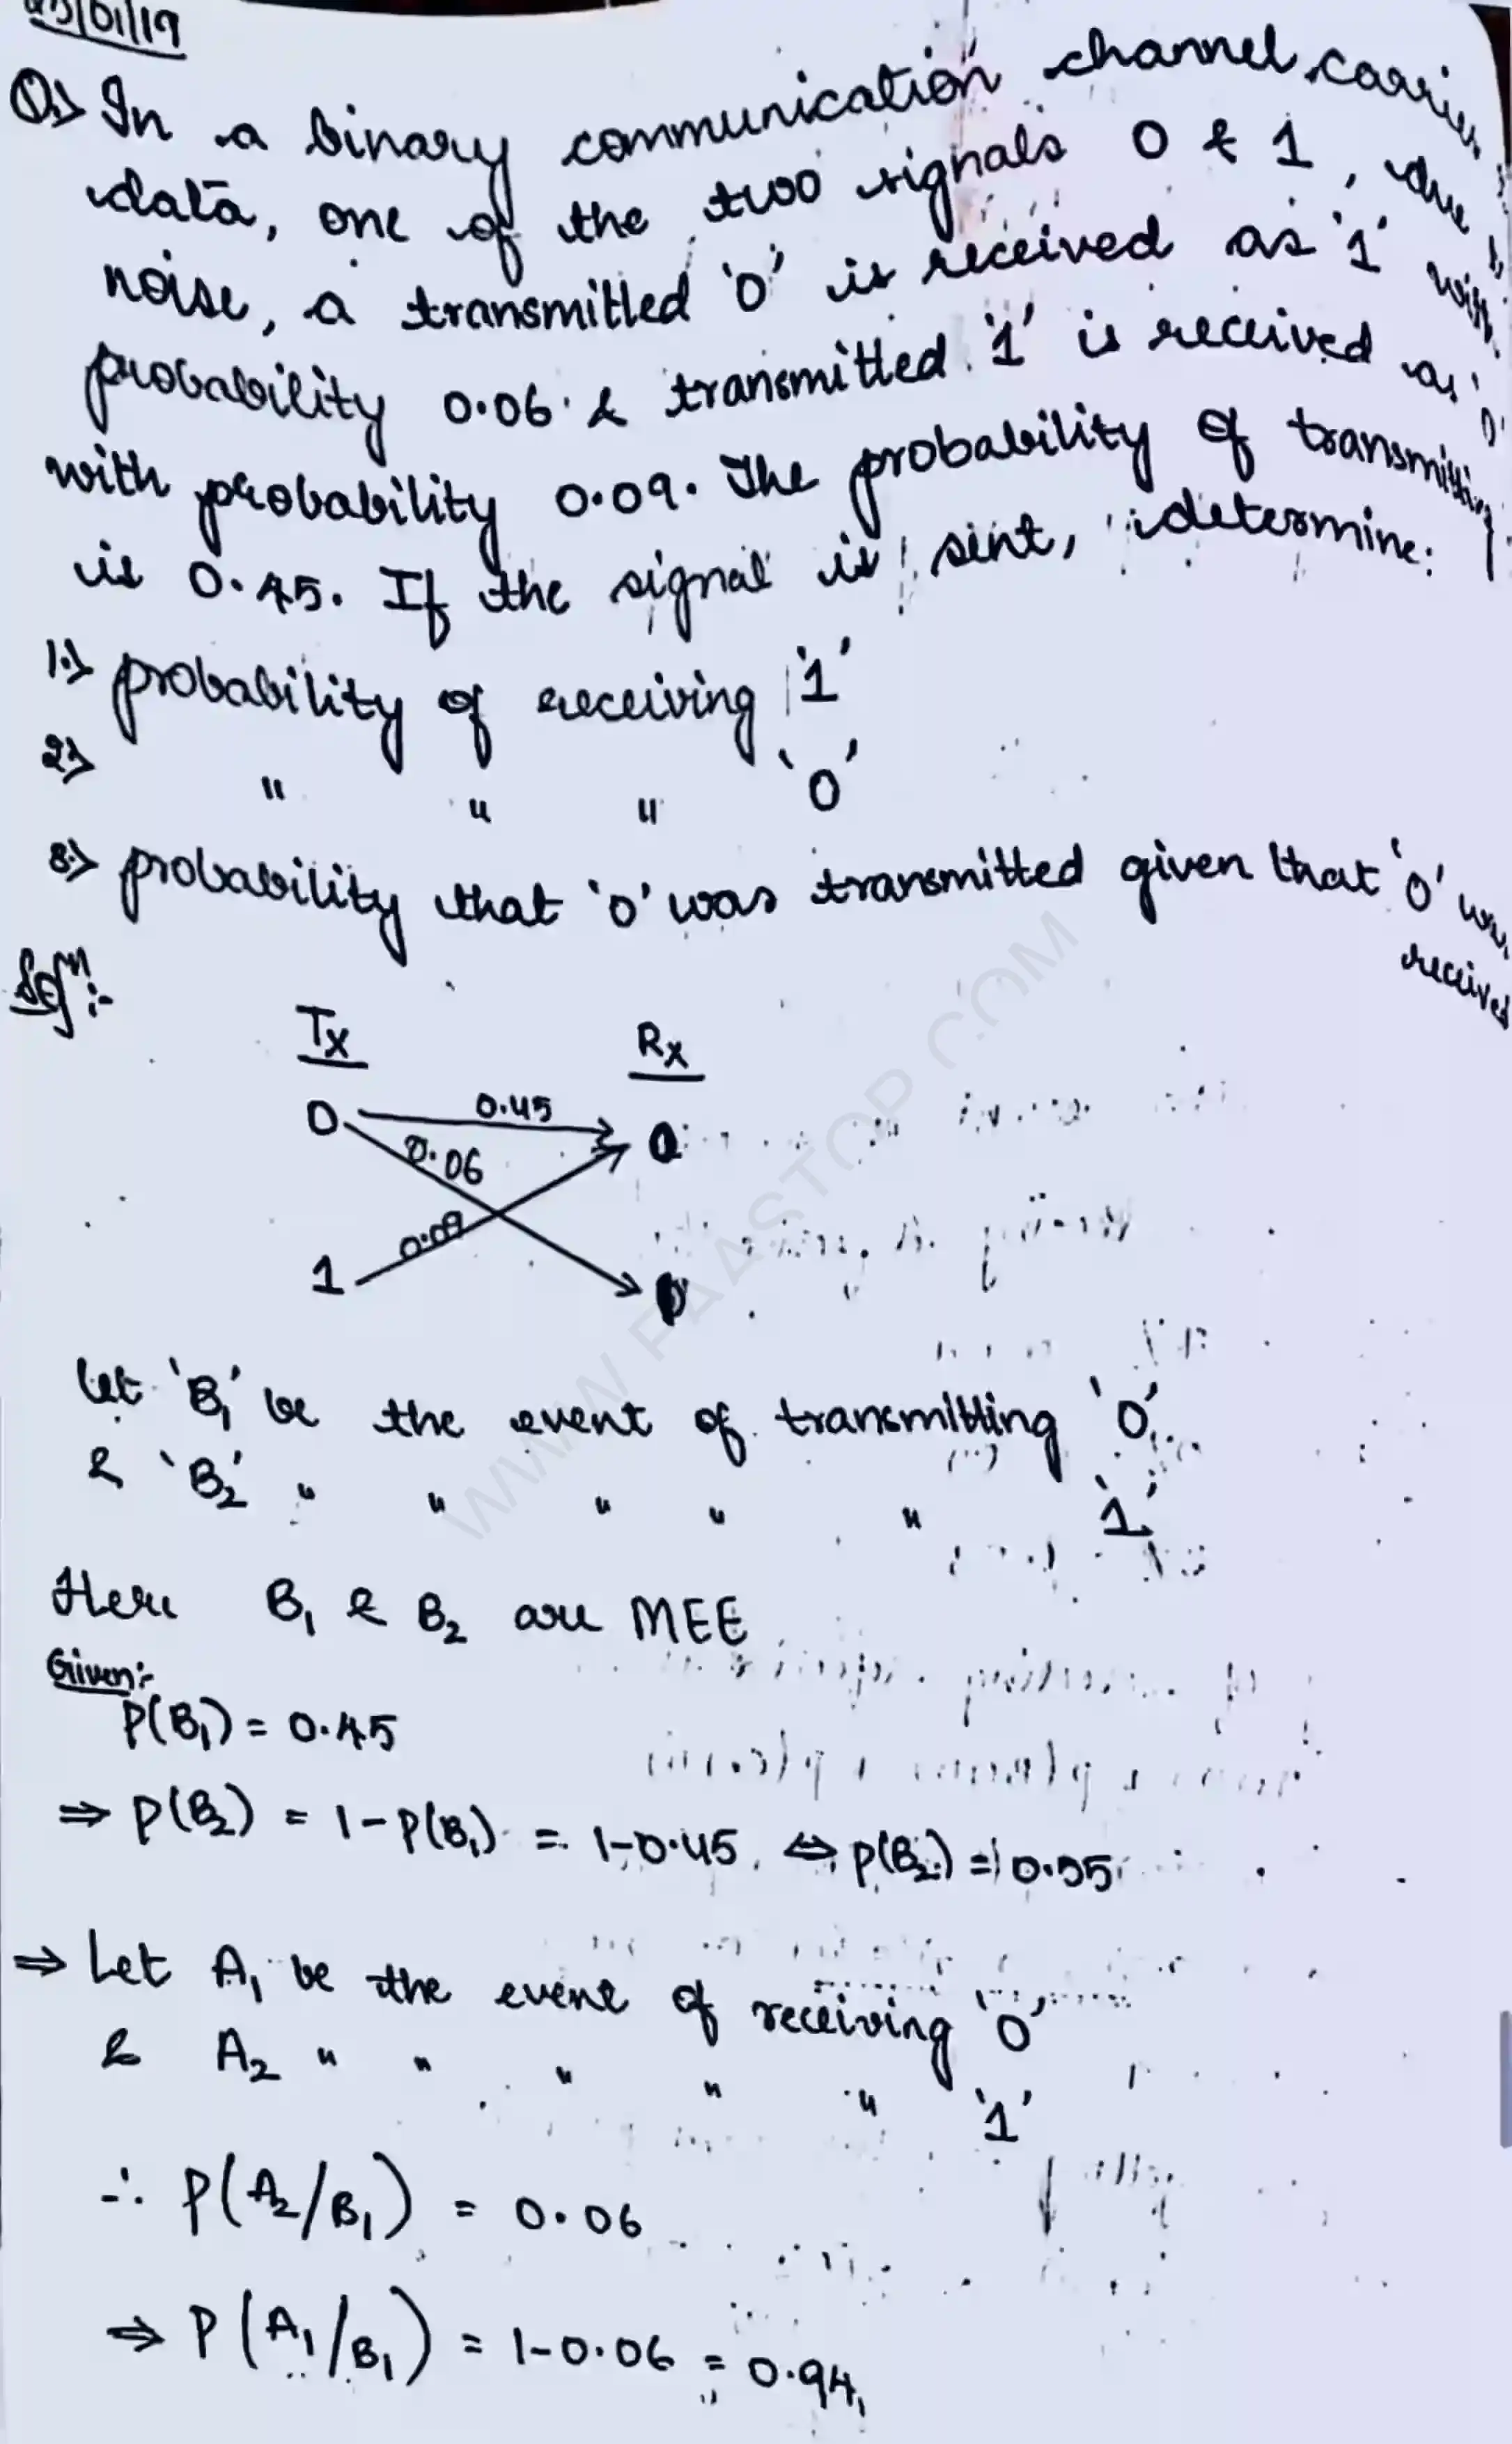 /01/19
Q.> In a binary communication channel carries
data, one of the two signals 0 & 1, due
noise, a transmitted '0' is received as '1' with
probability 0.06 & transmitted '1' is received as '0'
with probability 0.09. The probability of transmitting
is 0.45. If the signal is sent, determine:
1.> probability of receiving '1'
2.> " " " '0'
3.> probability that '0' was transmitted given that '0' was
received
Solⁿ:-
Tx Rx
0 0.45 0
0.06
0.09
1
Let 'B₁' be the event of transmitting '0'
& 'B₂' " " " " " '1'
Here B₁ & B₂ are MEE
Given:-
P(B₁) = 0.45
⇒ P(B₂) = 1-P(B₁) = 1-0.45 ⇔ P(B₂) = 0.55
⇒ Let A₁ be the event of receiving '0'
& A₂ " " " " " '1'
∴ P(A₂/B₁) = 0.06
⇒ P(A₁/B₁) = 1-0.06 = 0.94
WWW.FAASTOP.COM